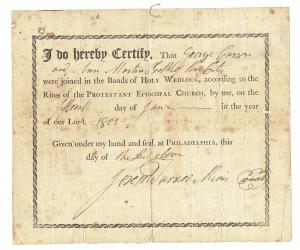 I do hereby Certify, That George
and Ann Martin both of this City
were joined in the Bands of HOLY WEDLOCK, according to the
Rites of the PROTESTANT EPISCOPAL CHURCH, by me, on the
day of June in the year
of our Lord, 1802
Given under my hand and seal, at PHILADELPHIA, this
day of the
Joseph Turner Minis